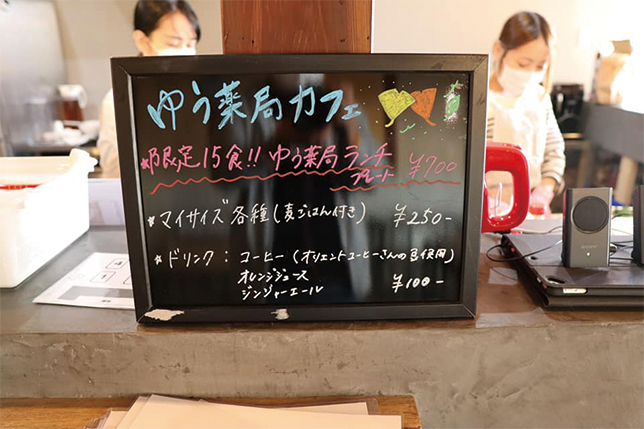 ゆう薬局カフェ
★限定15食!! ゆう薬局ランチプレート ¥700
★マイサイズ各種(麦ごはん付き) ¥250-
★ドリンク: コーヒー(オリエントコーヒーさんの豆使用)
オレンジジュース
ジンジャーエール ¥100-
SONY